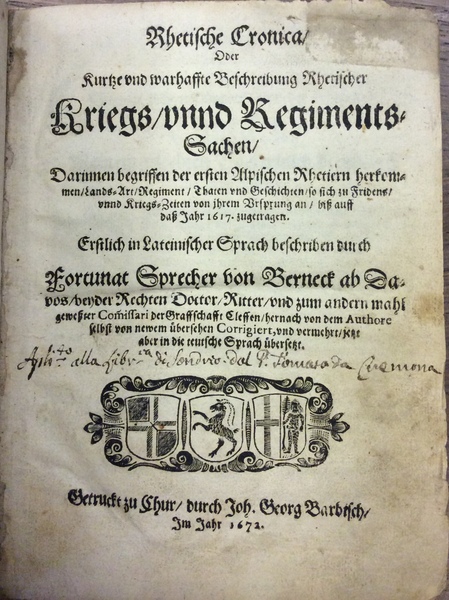 Rhetische Cronica/
Oder
Kurtze vnd warhaffte Beschreibung Rhetischer
Kriegs/vnnd Regiments-
Sachen/
Darinnen begriffen der ersten Alpischen Rhetiern herkom-
men/Lands-Art/Regiment/Thaten vnd Geschichten/so sich zu Fridens/
vnnd Kriegs-Zeiten von jhrem Vrsprung an/biß auff
daß Jahr 1617. zugetragen.
Erstlich in Lateinischer Sprach beschriben durch
Fortunat Sprecher von Berneck ab Da-
vos/beyder Rechten Doctor/Ritter/vnd zum andern mahl
geweßter Comissari der Graffschafft Cleffen/hernach von dem Authore
selbst von newem übersehen Corrigiert, vnd vermehrt/jetzt
aber in die teutsche Sprach übersetzt.
Aplic.to alla Libr.ia di Sondrio dal P. Tomaso da Cremona
Getruckt zu Chur/durch Joh. Georg Barbisch/
Im Jahr 1672.